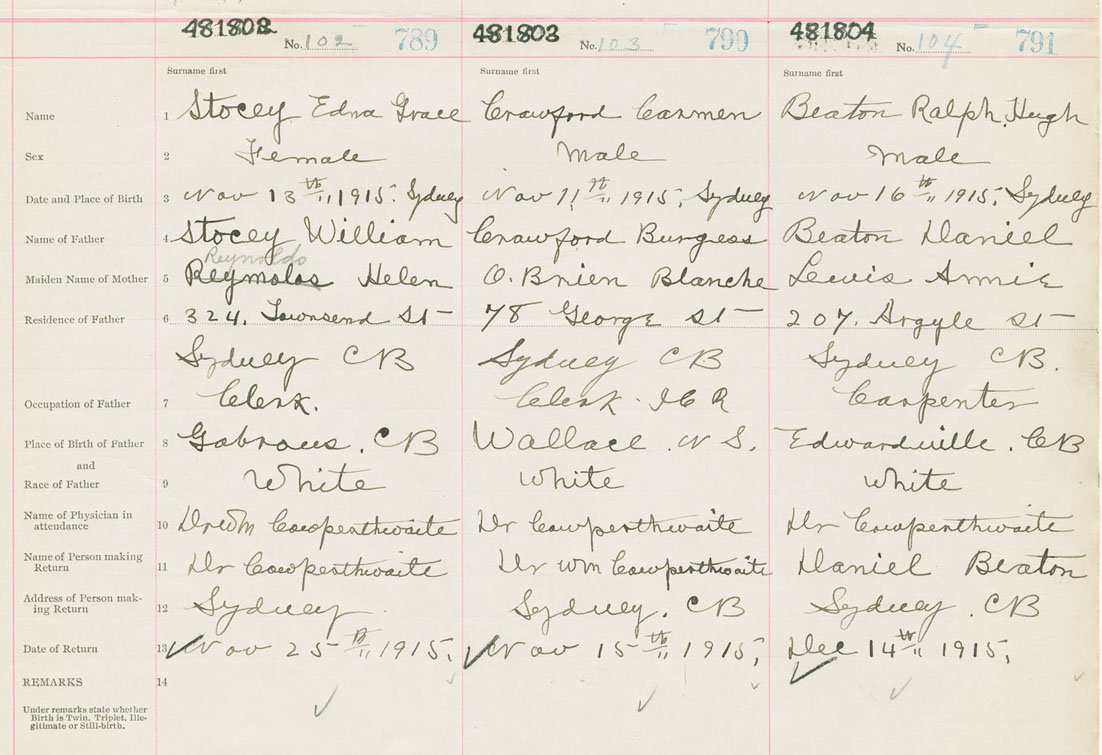 481802 481803 481804
No. 102 789 No. 103 790 No. 104 791
Surname first Surname first Surname first
Name 1 Stocey Edna Grace Crawford Carmen Beaton Ralph Hugh
Sex 2 Female Male Male
Date and Place of Birth 3 Nov 13th 1915. Sydney Nov 11th 1915, Sydney Nov 16th 1915, Sydney
Name of Father 4 Stocey William Crawford Burgess Beaton Daniel
Reynolds
Maiden Name of Mother 5 Reymolos Helen O. Brien Blanche Lewis Annie
Residence of Father 6 324. Townsend St 78 George St 207. Argyle St
Sydney CB Sydney CB Sydney CB.
Occupation of Father 7 Clerk. Clerk. I C R Carpenter
Place of Birth of Father 8 Gabrous. CB Wallace. N S. Edwardville. CB
and
Race of Father 9 White White White
Name of Physician in
attendance 10 Dr Wm Cowperthwaite Dr Cowperthwaite Dr Cowperthwaite
Name of Person making
Return 11 Dr Cowperthwaite Dr Wm Cowperthwaite Daniel Beaton
Address of Person mak-
ing Return 12 Sydney Sydney. CB Sydney. CB
Date of Return 13 Nov 25th 1915, Nov 15th 1915, Dec 14th 1915,
REMARKS 14
Under remarks state whether
Birth is Twin, Triplet, Ille-
gitimate or Still-birth.